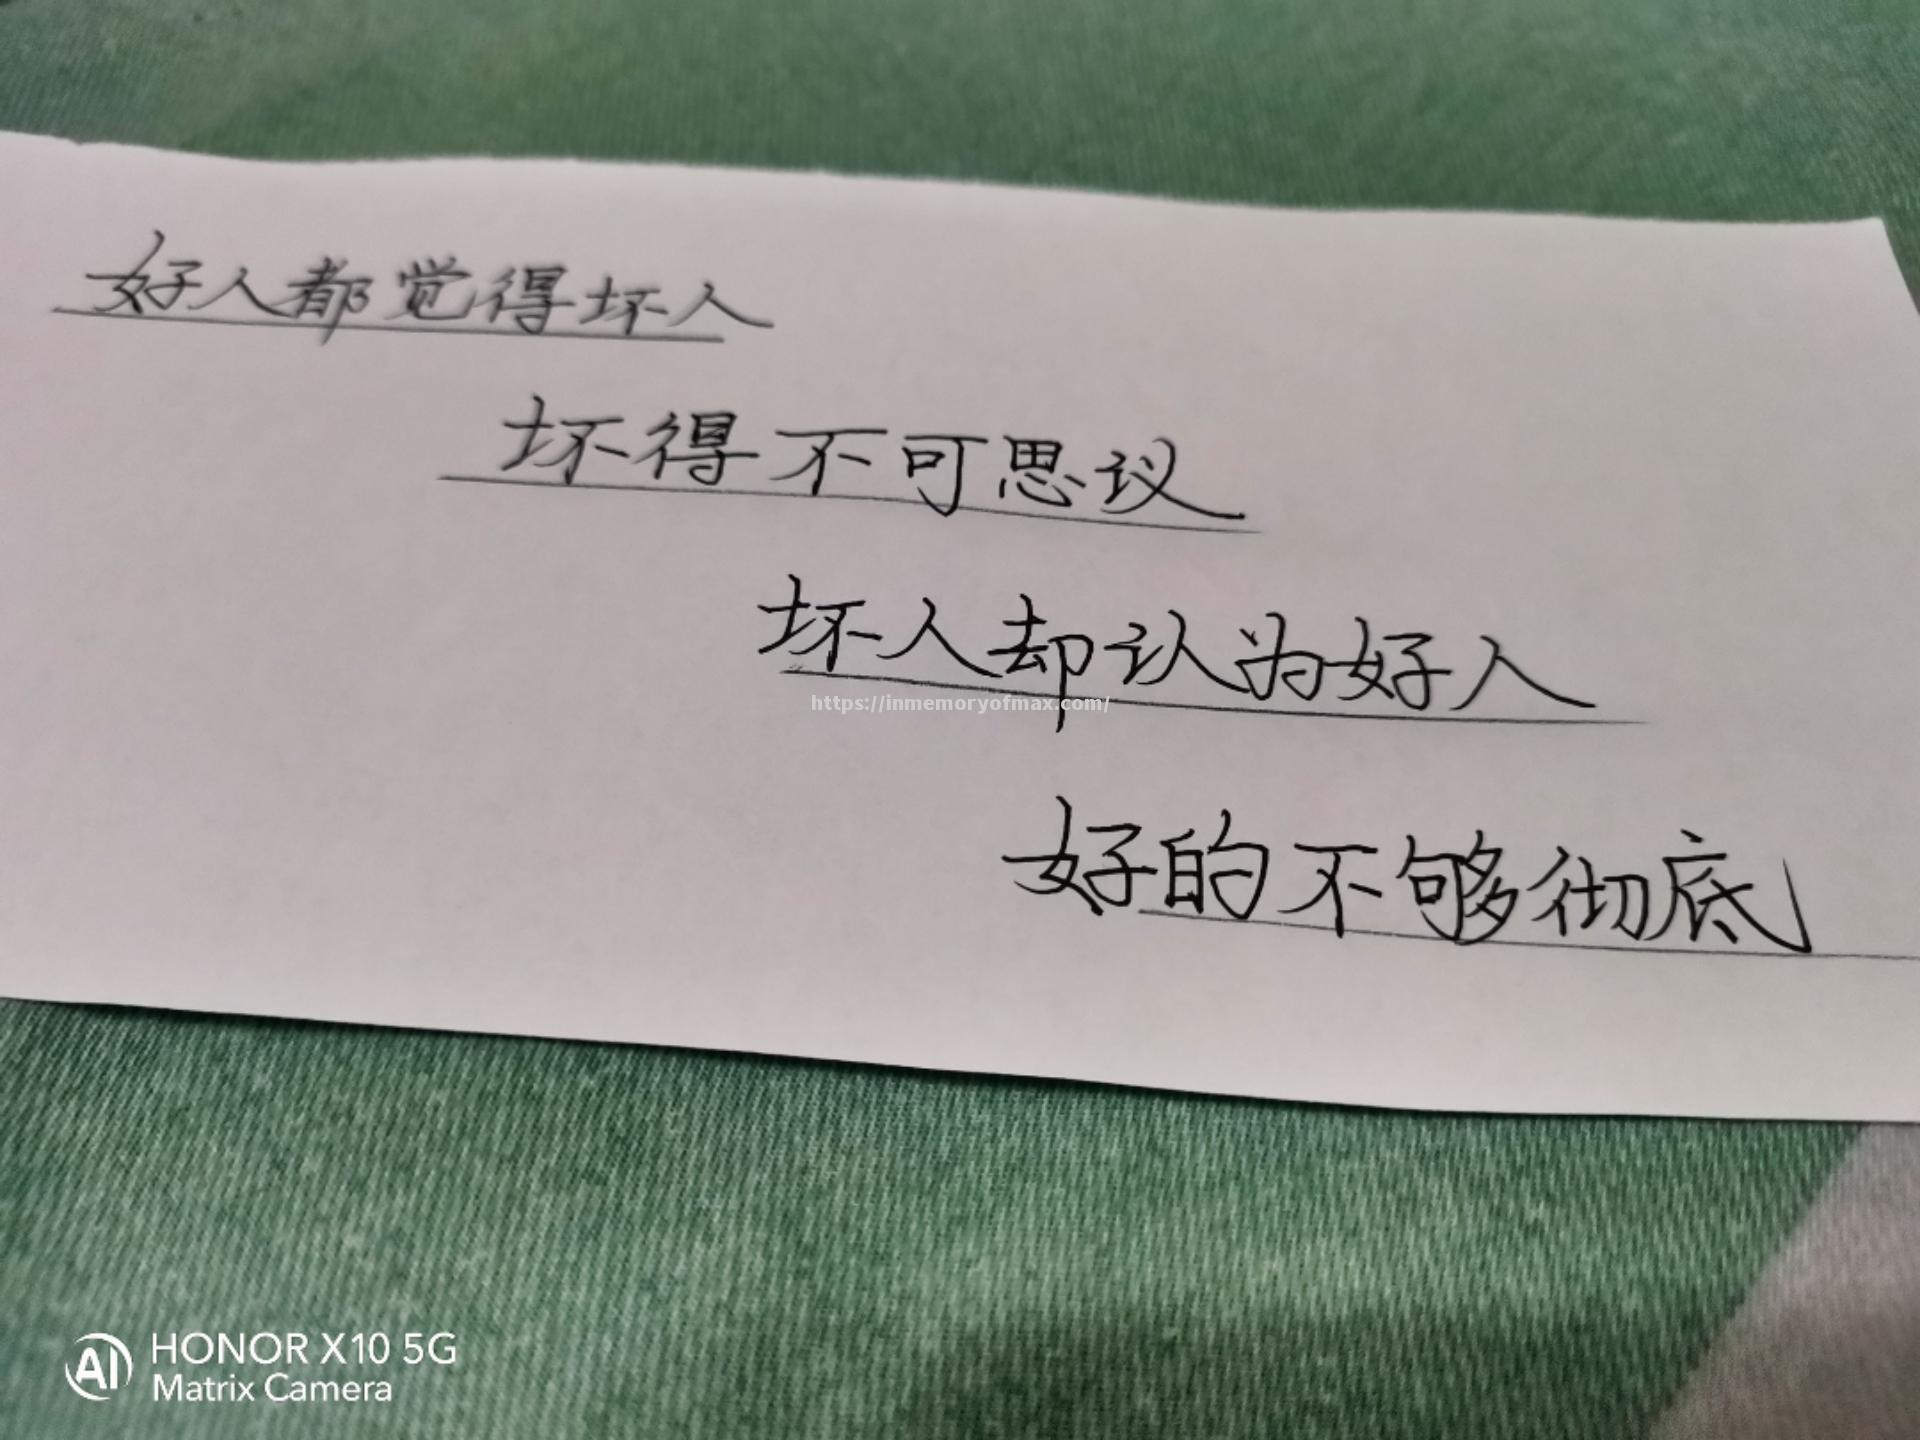 好人都觉得坏人
坏得不可思议
坏人却认为好人
https://inmemoryofmax.com/
好的不够彻底
AI HONOR X10 5G
Matrix Camera